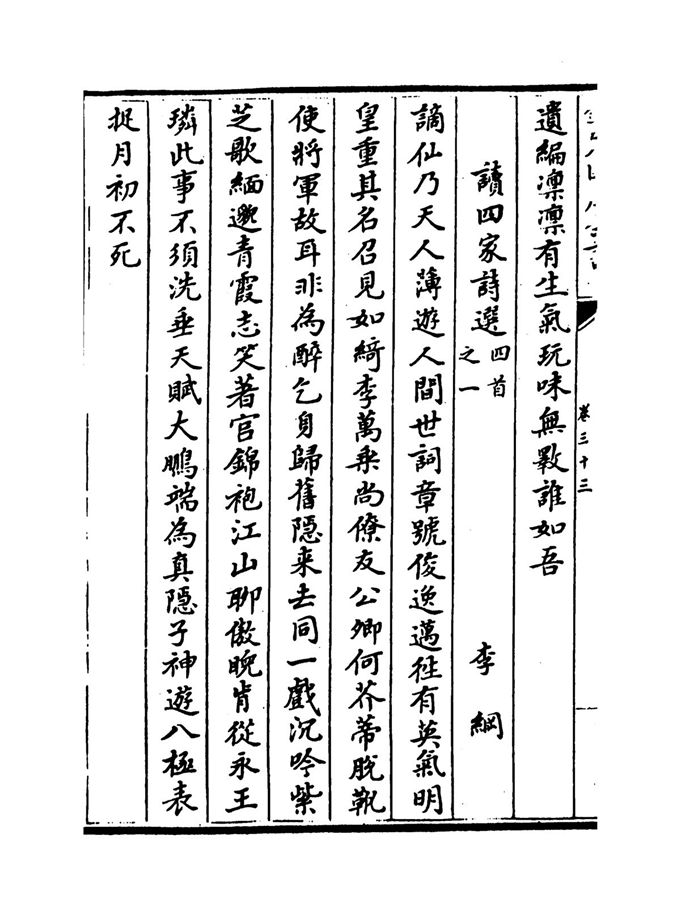 卷三十三
遺編凜凜有生氣玩味無斁誰如吾
讀四家詩選四首之一 李綱
謫仙乃天人薄遊人間世詞章號俊逸邁徃有英氣明
皇重其名召見如綺季萬乗尚僚友公卿何芥蒂脫靴
使將軍故耳非為醉乞身歸舊隱来去同一戲沉吟紫
芝歌緬邈青霞志笑著宮錦袍江山聊傲睨肯從永王
璘此事不須洗垂天賦大鵬端為真隱子神遊八極表
捉月初不死